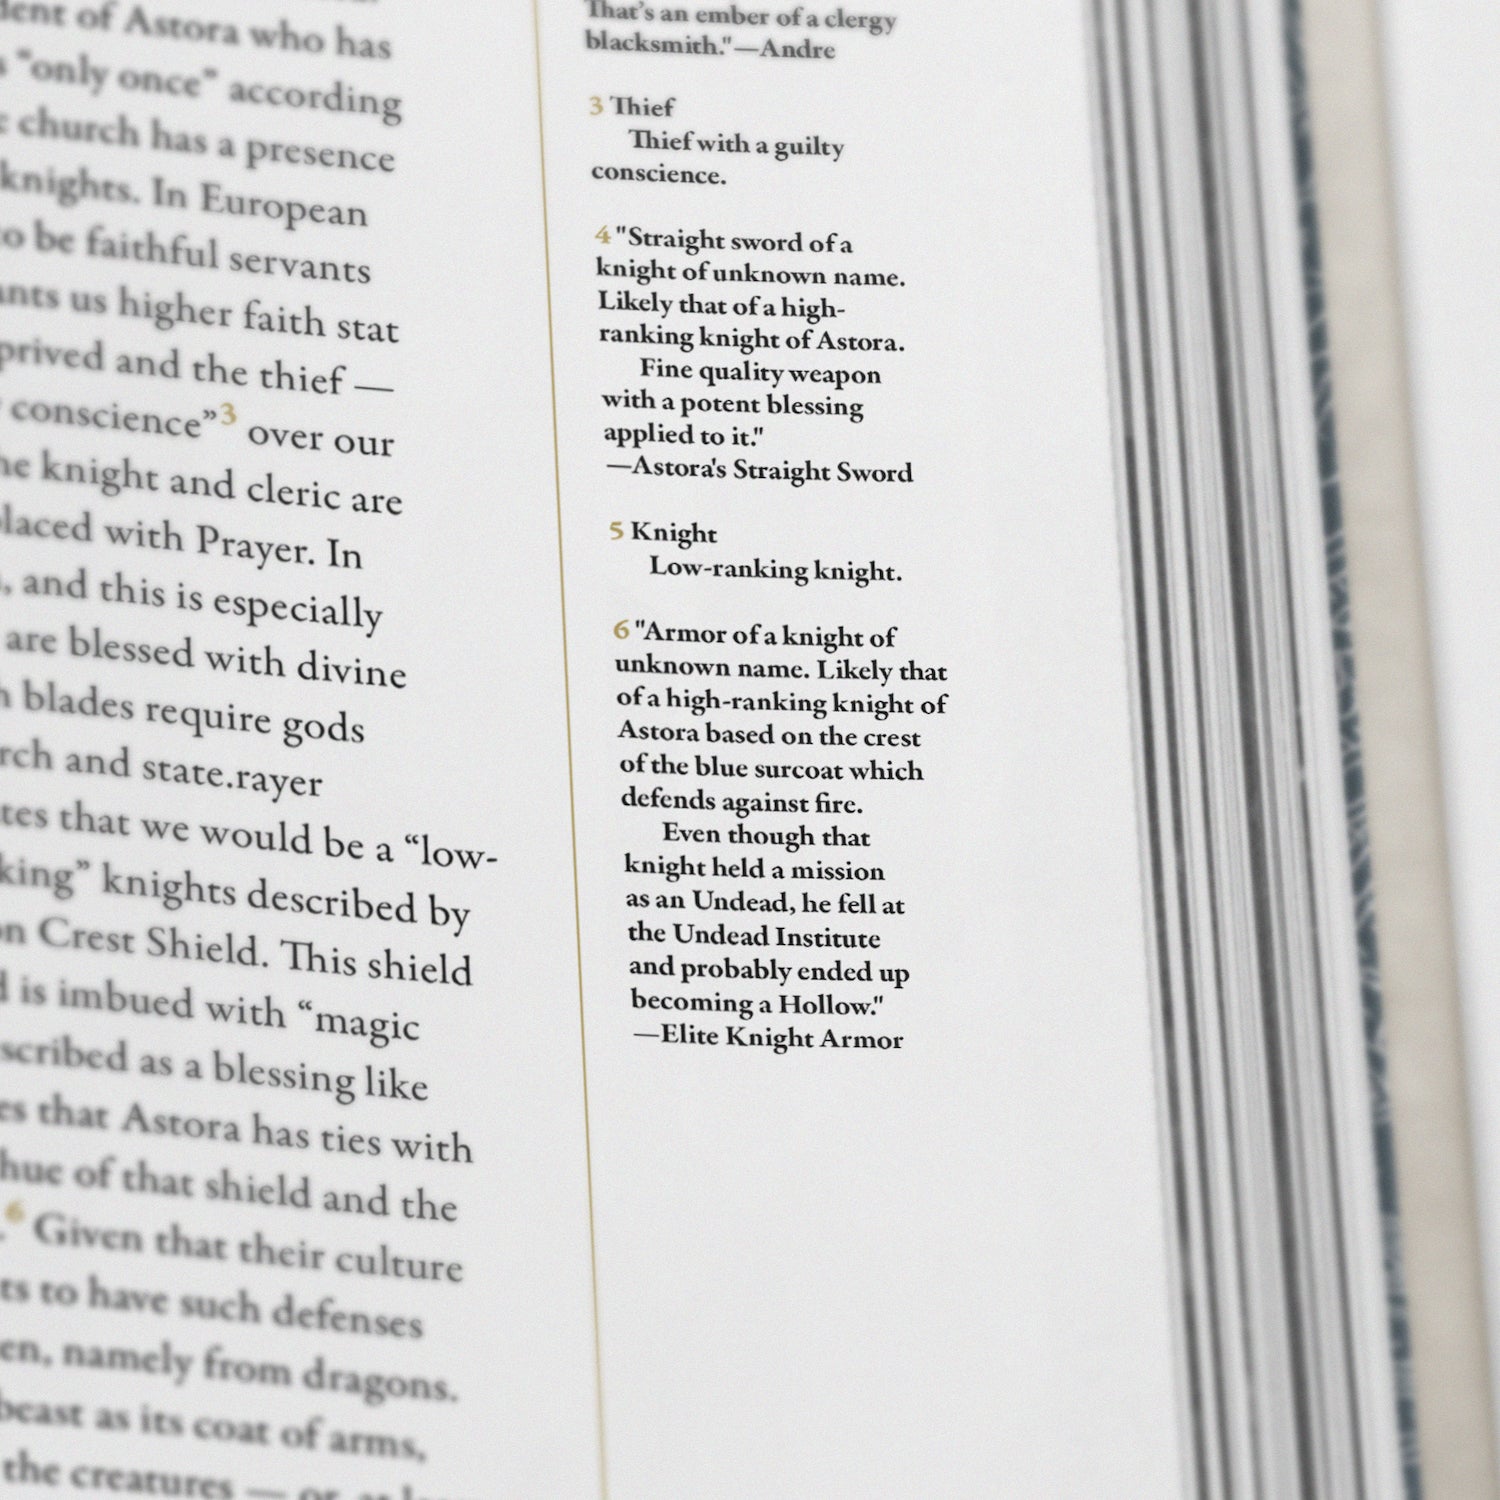 dent of Astora who has
"only once" according
church has a presence
knights. In European
to be faithful servants
us higher faith stat
and the thief —
conscience”3 over our
knight and cleric are
with Prayer. In
, and this is especially
are blessed with divine
blades require gods
and state.rayer
that we would be a “low-
king” knights described by
Crest Shield. This shield
is imbued with “magic
scribed as a blessing like
that Astora has ties with
hue of that shield and the
.6 Given that their culture
to have such defenses
en, namely from dragons.
beast as its coat of arms,
the creatures — or
That's an ember of a clergy
blacksmith."—Andre
3 Thief
Thief with a guilty
conscience.
4 "Straight sword of a
knight of unknown name.
Likely that of a high-
ranking knight of Astora.
Fine quality weapon
with a potent blessing
applied to it."
—Astora's Straight Sword
5 Knight
Low-ranking knight.
6 "Armor of a knight of
unknown name. Likely that
of a high-ranking knight of
Astora based on the crest
of the blue surcoat which
defends against fire.
Even though that
knight held a mission
as an Undead, he fell at
the Undead Institute
and probably ended up
becoming a Hollow."
—Elite Knight Armor